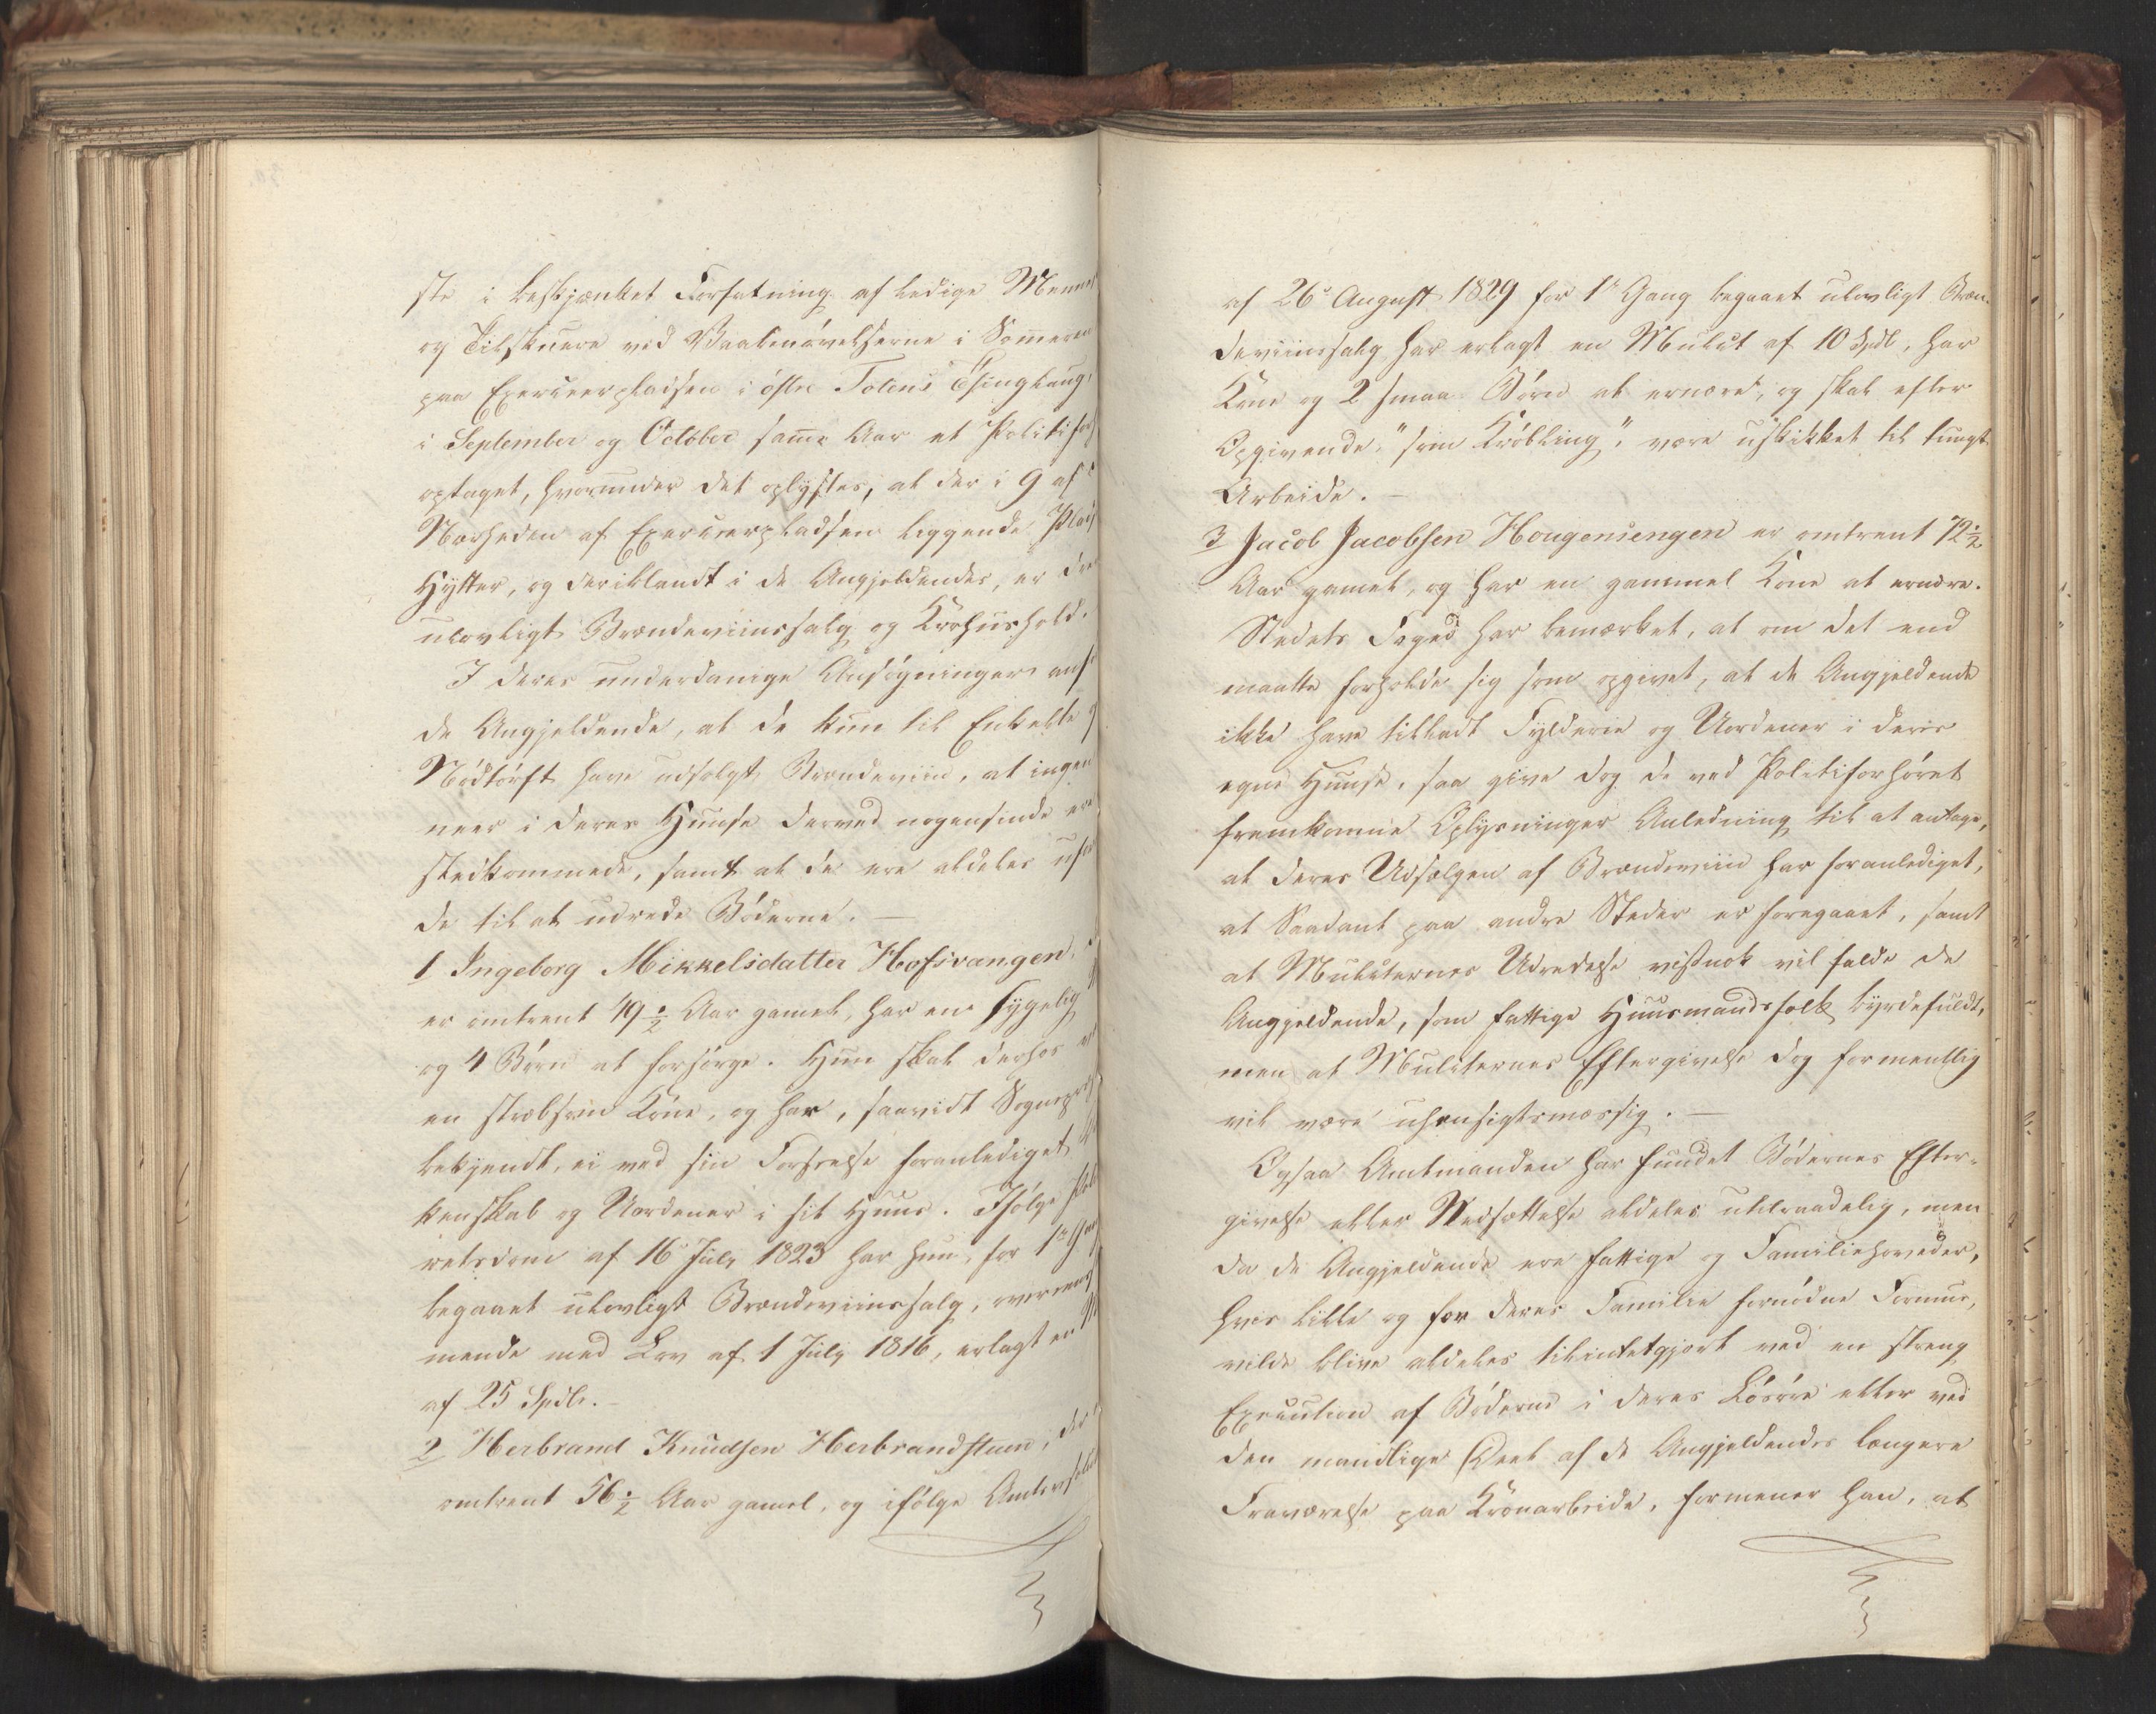 ste i beskjænket Forfatning af ledige Mennes
og Tilskuere ved Vaabenøvelserne i Sommeren
paa Exerceerpladsen i østre Totens Thinglaug,
i September og October samme Aar et Politiforh
optaget, hvorunder det oplystes, at der i 9 af
Nærheden af Exerceerpladsen liggende Plads
Hytter, og deriblandt i de Angjeldendes, er drev
ulovligt Brændeviinssalg og Krohuushold.
I deres underdanige Ansøgninger anfø
de Angjeldende, at de kun til Enkelte
Nødtørft have udsolgt Brændeviin, at ingen
neer i deres Huuse derved nogensinde ere
stedkommede, samt at de ere aldeles ufor
de til at udrede Bøderne. —
1 Ingeborg Mikkelsdatter Hofsvangen,
er omtrent 49 ½ Aar gamel, har en sygelig
og 4 Børn at forsørge. Hun skal derhos
en stræbsom Kone, og har, saavidt Sognepr
bekjendt, ei ved sin Forseelse foranlediget
kenskab og Uordener i sit Huus. Ifølge Poli
retsdom af 16 July 1823 har hun, for 1ste Gang
begaaet ulovligt Brændeviinssalg, overeens
mende med Lov af 1 July 1816, erlagt en M
af 25 Spdlr. —
2 Herbrand Knudsen Herbrandstuen, der
omtrent 56 ½ Aar gamel, og ifølge
af 26de August 1829 for 1ste Gang begaaet ulovligt Bræn-
deviinssalg har erlagt en Mulct af 10 Spdlr, har
Kone og 2 smaa Børn at ernære, og skal efter
Opgivende, "som Krøbling", være uskikket til tungt
Arbeide. —
3 Jacob Jacobsen Hougensengen er omtrent 72 ½
Aar gamel, og har en gammel Kone at ernære.
Stedets Foged har bemærket, at om det end
maatte forholde sig som opgivet, at de Angjeldende
ikke have tilladt Fylderie og Uordener i deres
egne Huuse, saa give dog de ved Politiforhøret
fremkomne Oplysninger Anledning til at antage,
at deres Udsælgen af Brændeviin har foranlediget,
at Saadant paa andre Steder er foregaaet, samt
at Mulcternes Udredelse vistnok vil falde de
Angjeldende, som fattige Huusmandsfolk byrdefuldt,
men at Mulcternes Eftergivelse dog formentlig
vil være uhensigtsmæssig. —
Ogsaa Amtmanden har fundet Bødernes Efter-
givelse eller Nedsættelse aldeles utilraadelig, men
da de Angjeldende ere fattige og Familiehoveder,
hvis lille og for deres Familie fornødne Formue,
vilde blive aldeles tilintetgjort ved en streng
Execution af Bøderne i deres Løsøre eller ved
den mandlige Deel af de Angjeldendes længere
Fraværelse paa Kronarbeide, formener han, at